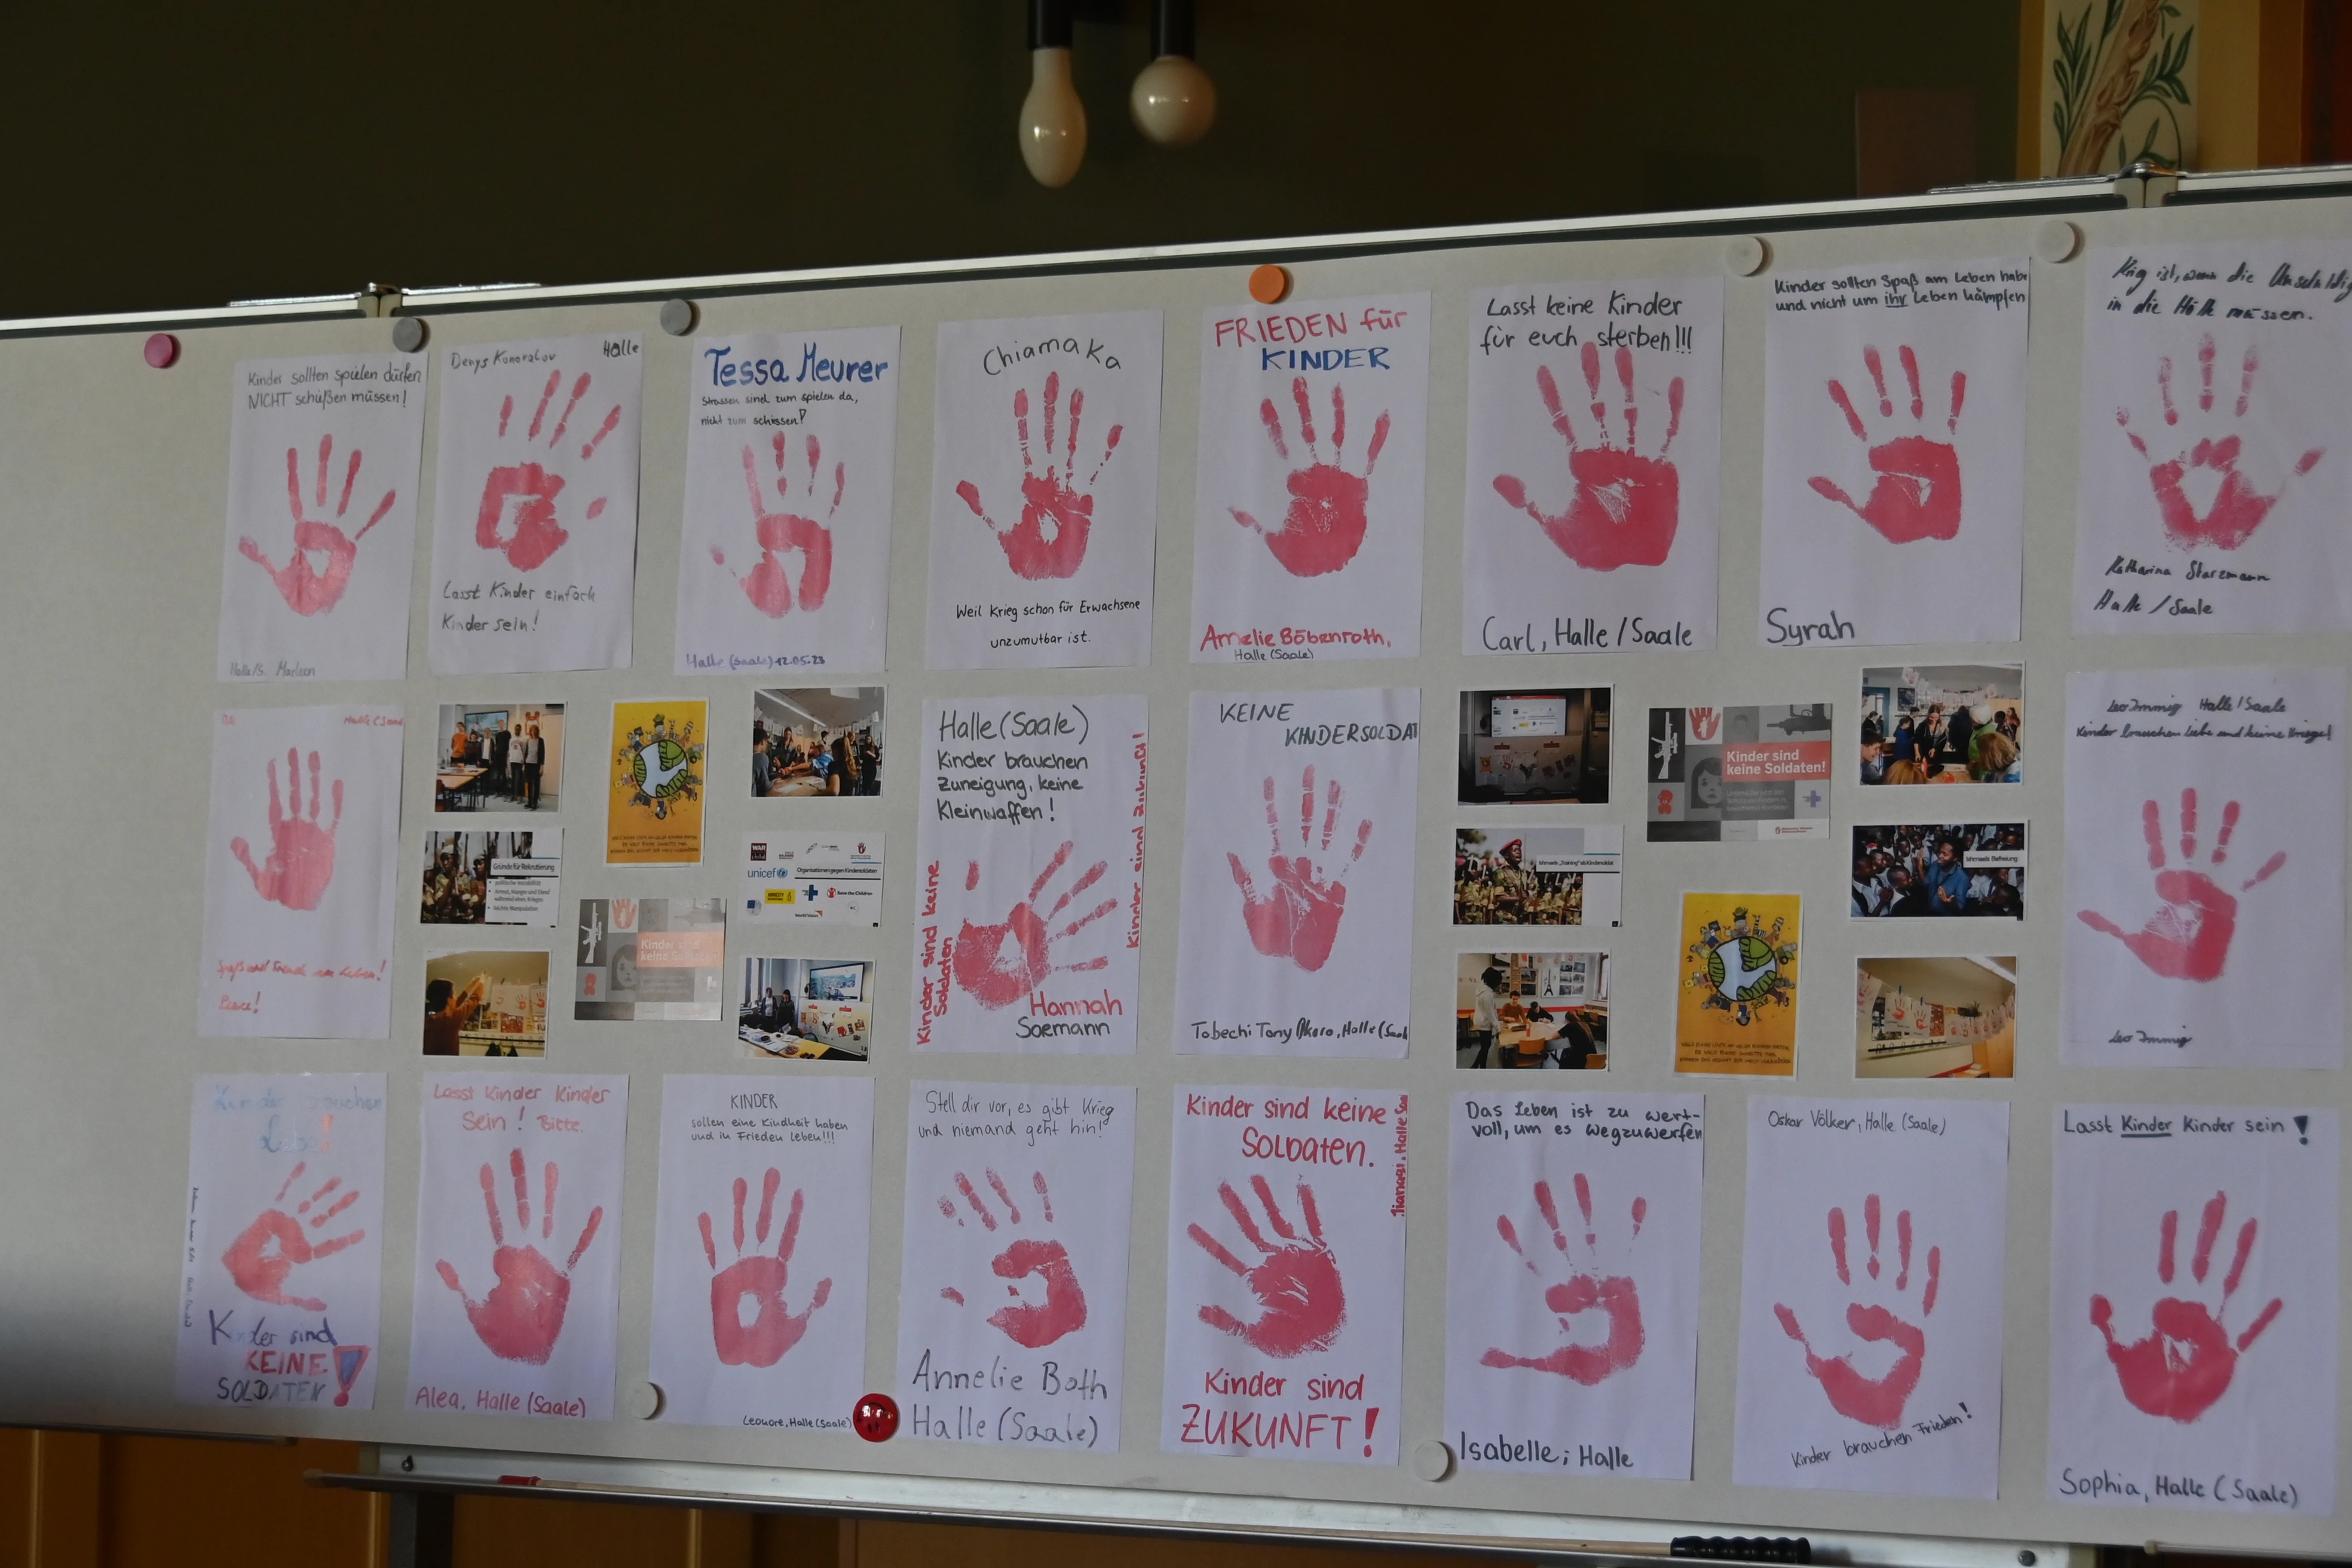 Kinder sollten spielen dürfen
NICHT schießen müssen!
Halle/S. Marleen
Denys Konovalov
Halle
Lasst Kinder einfach
Kinder sein!
Tessa Meurer
Strassen sind zum spielen da,
nicht zum schiessen!
Halle (Saale) 12.05.23
Chiamaka
Weil Krieg schon für Erwachsene
unzumutbar ist.
FRIEDEN für
KINDER
Amelie Böbenroth,
Halle (Saale)
Lasst keine Kinder
für euch sterben!!!
Carl, Halle/Saale
Kinder sollten Spaß am Leben habe
und nicht um ihr Leben kämpfen
Syrah
Krieg ist, wenn die Unschuldig
in die Hölle müssen.
Katharina Starzmann
Halle/Saale
Spaß und Freude am Leben!
Peace!
Gründe für Rekrutierung
unicef
Organisationen gegen Kindersoldaten
WAR
AMNESTY
Save the Children
World Vision
Kinder sind
keine Soldaten!
Halle (Saale)
Kinder brauchen
Zuneigung, keine
Kleinwaffen!
Kinder sind keine
Soldaten
Kinder sind Zukunft!
Hannah
Soemann
KEINE
KINDERSOLDAT
Tobechi Tony Okoro, Halle (Saale
Ishmaels „Training" als Kindersoldat
Kinder sind
keine Soldaten!
Ishmaels Befreiung
Leo Immig Halle/Saale
Kinder brauchen Liebe und keine Kriege!
Leo Immig
Kinder brauchen
Liebe!
Kinder sind
KEINE
SOLDATEN!
Lasst Kinder Kinder
Sein! Bitte.
Alea, Halle (Saale)
KINDER
sollen eine Kindheit haben
und in Frieden leben!!!
Leonore, Halle (Saale)
Stell dir vor, es gibt Krieg
und niemand geht hin!
Annelie Both
Halle (Saale)
Kinder sind keine
SOLDATEN.
Kinder sind
ZUKUNFT!
Das Leben ist zu wert-
voll, um es wegzuwerfen
Isabelle; Halle
Oskar Völker, Halle (Saale)
Kinder brauchen Frieden!
Lasst Kinder Kinder sein!
Sophia, Halle (Saale)